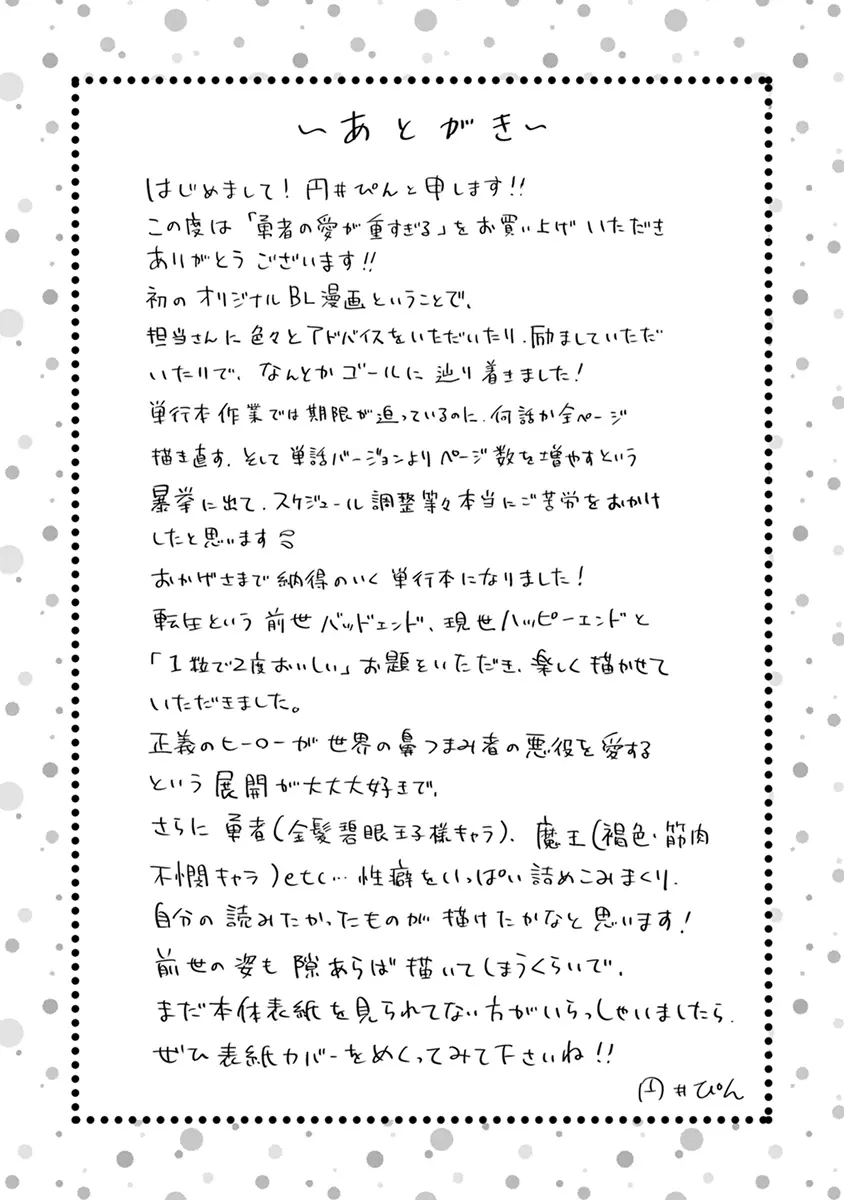 ～あとがき～
はじめまして!円井ぴんと申します!!
この度は「勇者の愛が重すぎる」をお買い上げいただき
ありがとうございます!!
初のオリジナルBL漫画ということで、
担当さんに色々とアドバイスをいただいたり、励ましていただ
いたりで、なんとかゴールに辿り着きました!
単行本作業では期限が迫っているのに、何話か全ページ
描き直す、そして単話バージョンよりページ数を増やすという
暴挙に出て、スケジュール調整等々本当にご苦労をおかけ
したと思います
おかげさまで納得のいく単行本になりました!
転生という前世バッドエンド、現世ハッピーエンドと
「1粒で2度おいしい」お題をいただき、楽しく描かせて
いただきました。
正義のヒーローが世界の鼻つまみ者の悪役を愛する
という展開が大大大好きで、
さらに勇者(金髪碧眼王子様キャラ)、魔王(褐色・筋肉
不憫キャラ)etc…性癖をいっぱい詰めこみまくり、
自分の読みたかったものが描けたかなと思います!
前世の姿も隙あらば描いてしまうくらいで、
まだ本体表紙を見られてない方がいらっしゃいましたら、
ぜひ表紙カバーをめくってみて下さいね!!
円井ぴん